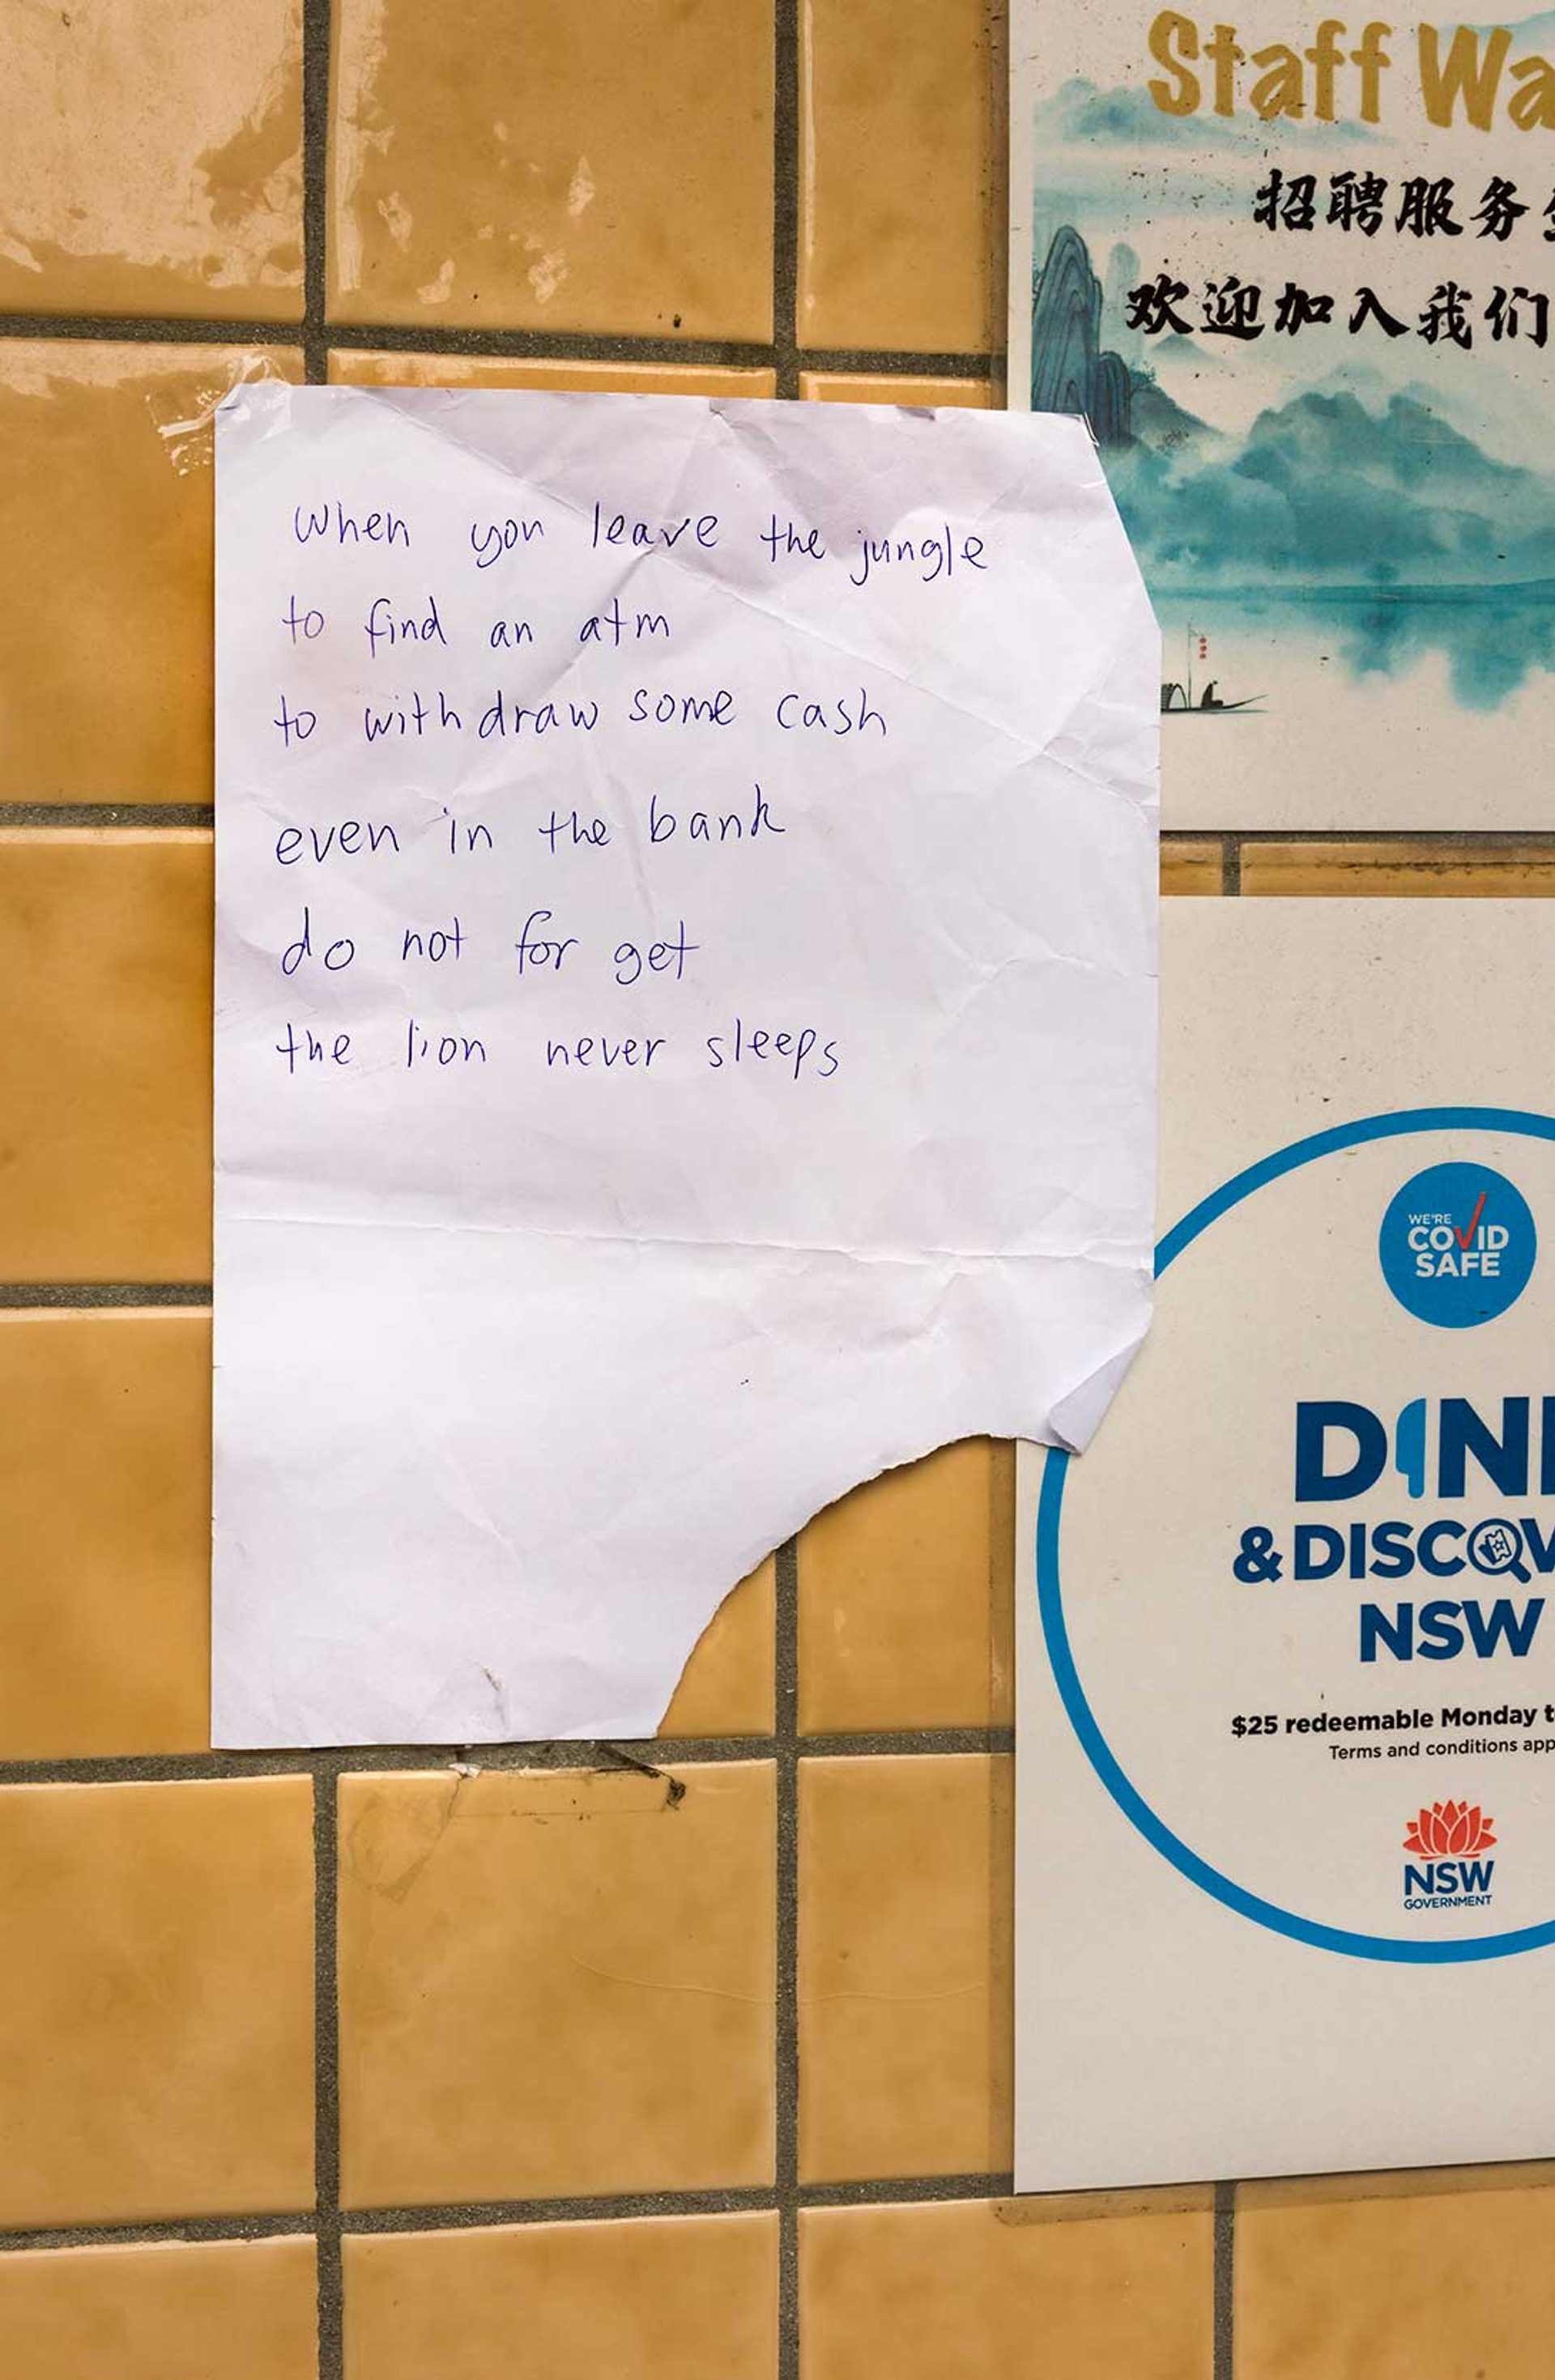 When you leave the jungle
to find an atm
to withdraw some cash
even in the bank
do not for get
the lion never sleeps
Staff Wa
招聘服务
欢迎加入我们
WE'RE
COVID
SAFE
DINE
& DISCOV
NSW
$25 redeemable Monday t
Terms and conditions app
NSW
GOVERNMENT